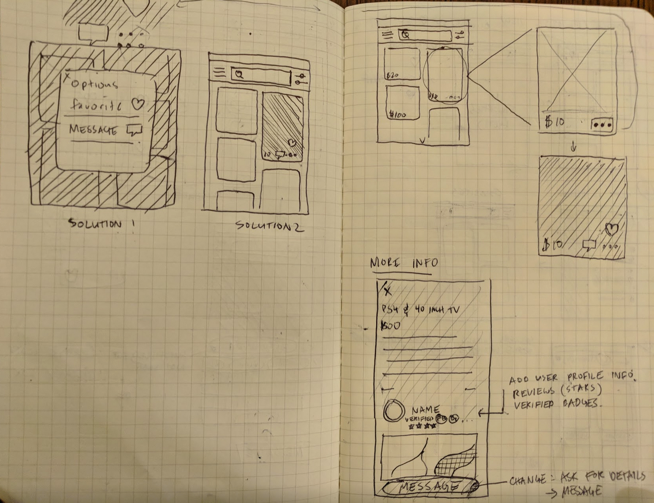 x
Options
favorite
MESSAGE
SOLUTION 1
10
SOLUTION 2
$20
$100
$10
$10
MORE INFO
X
PS4 & 40 INCH TV
NAME
VERIFIED
ADD USER PROFILE INFO.
REVIEWS (STARS)
VERIFIED BADGES.
MESSAGE
CHANGE: ASK FOR DETAILS
→ MESSAGE